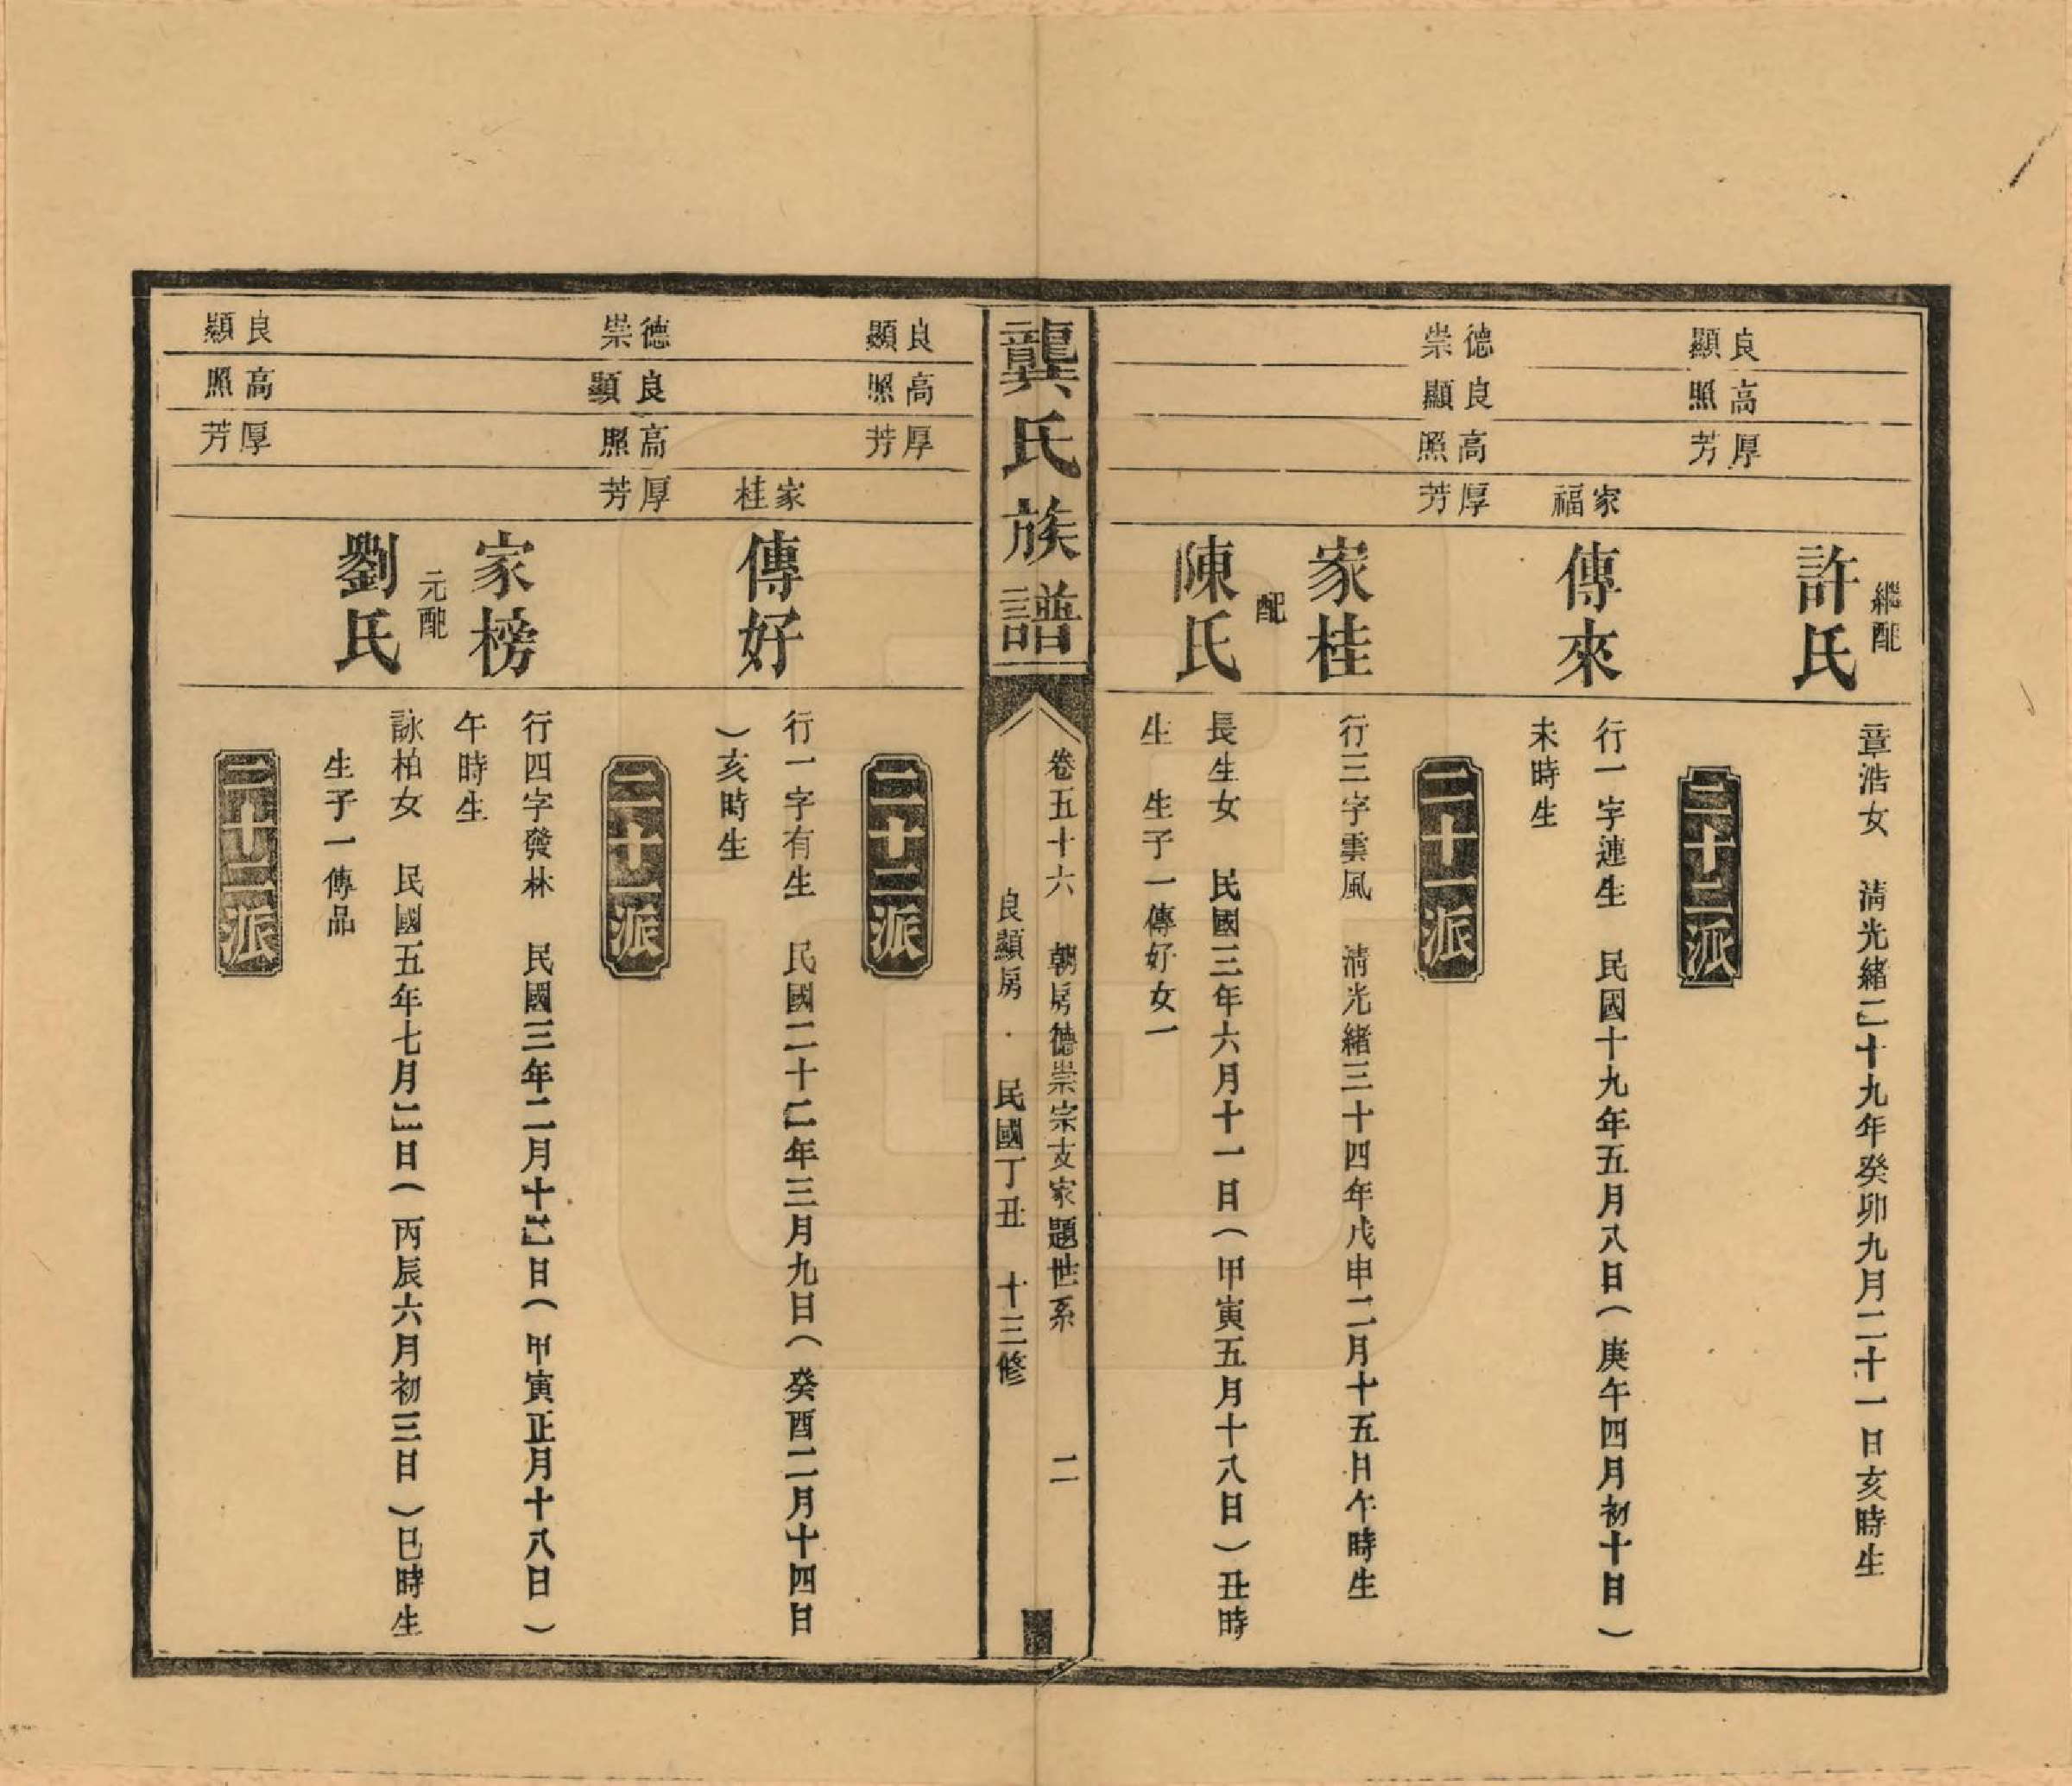 繼配
許氏
章浩女　清光緒二十九年癸卯九月二十一日亥時生
良顯
高照
厚芳
二十二派
家福
傳來
行一字連生　民國十九年五月八日（庚午四月初十日）
未時生
德崇
良顯
高照
厚芳
二十一派
家桂
行三字雲風　清光緒三十四年戊申二月十五日午時生
配
陳氏
長生女　民國三年六月十一日（甲寅五月十八日）丑時
生　生子一傳好女一
龔氏族譜
卷五十六　朝房德崇宗支家題世系　二
良顯房　民國丁丑　十三修
良顯
高照
厚芳
二十二派
家桂
傳好
行一字有生　民國二十二年三月九日（癸酉二月十四日
）亥時生
德崇
良顯
高照
厚芳
二十一派
家榜
行四字發林　民國三年二月十二日（甲寅正月十八日）
午時生
元配
劉氏
詠柏女　民國五年七月二日（丙辰六月初三日）巳時生
生子一傳品
良顯
高照
厚芳
二十二派